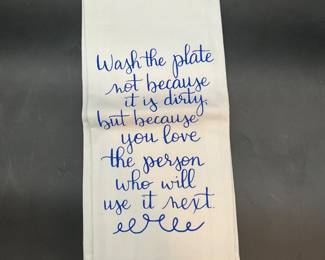 Wash the plate
not because
it is dirty,
but because
you love
the person
who will
use it next.